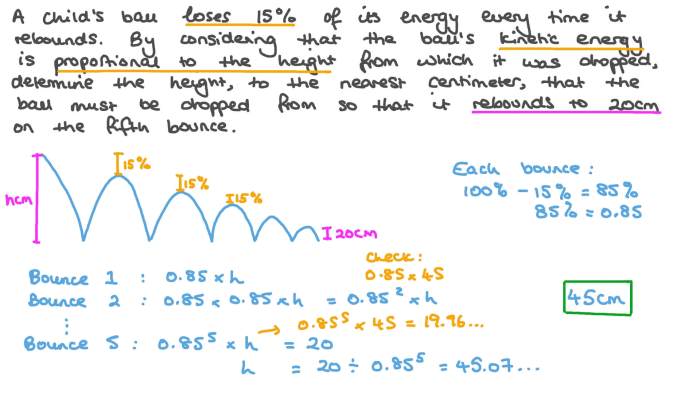 A child's ball loses 15% of its energy every time it
rebounds. By considering that the ball's kinetic energy
is proportional to the height from which it was dropped,
determine the height, to the nearest centimeter, that the
ball must be dropped from so that it rebounds to 20cm
on the fifth bounce.
15%
15%
15%
hcm
20cm
Each bounce:
100% - 15% = 85%
85% = 0.85
Check:
0.85 x 45
Bounce 1 : 0.85 x h
Bounce 2 : 0.85 x 0.85 x h = 0.85² x h
⋮
0.85⁵ x 45 = 19.96...
Bounce 5 : 0.85⁵ x h = 20
h = 20 ÷ 0.85⁵ = 45.07...
45cm